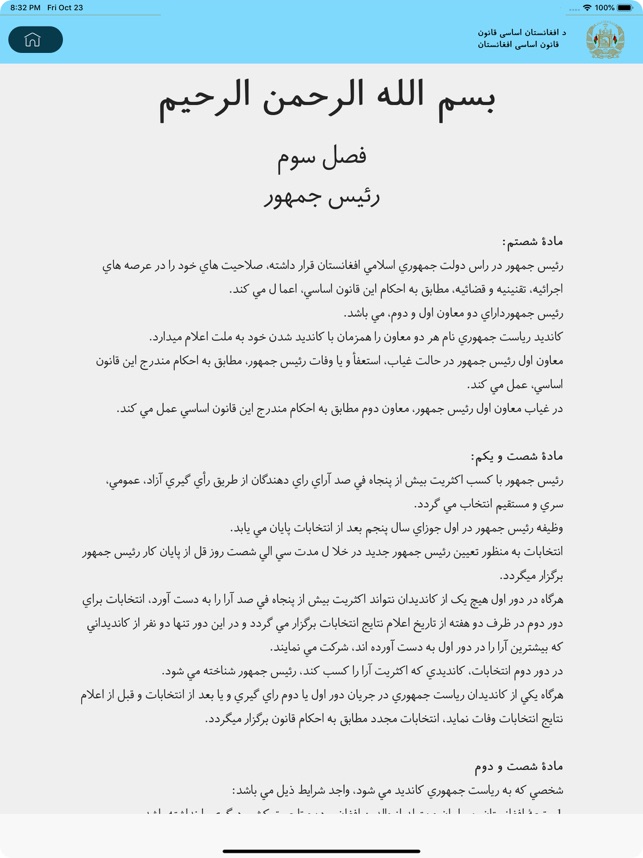 8:32 PM Fri Oct 23
100%
د افغانستان اساسی قانون
قانون اساسی افغانستان
بسم الله الرحمن الرحیم
فصل سوم
رئیس جمهور
مادۀ شصتم:
رئیس جمهور در راس دولت جمهوري اسلامي افغانستان قرار داشته، صلاحیت هاي خود را در عرصه هاي
اجرائیه، تقنینیه و قضائیه، مطابق به احکام این قانون اساسي، اعما ل مي کند.
رئیس جمهورداراي دو معاون اول و دوم، مي باشد.
کاندید ریاست جمهوري نام هر دو معاون را همزمان با کاندید شدن خود به ملت اعلام میدارد.
معاون اول رئیس جمهور در حالت غیاب، استعفأ و یا وفات رئیس جمهور، مطابق به احکام مندرج این قانون
اساسي، عمل مي کند.
در غیاب معاون اول رئیس جمهور، معاون دوم مطابق به احکام مندرج این قانون اساسي عمل مي کند.
مادۀ شصت و یکم:
رئیس جمهور با کسب اکثریت بیش از پنجاه في صد آراي راي دهندگان از طریق رأي گیري آزاد، عمومي،
سري و مستقیم انتخاب مي گردد.
وظیفه رئیس جمهور در اول جوزاي سال پنجم بعد از انتخابات پایان مي یابد.
انتخابات به منظور تعیین رئیس جمهور جدید در خلا ل مدت سي الي شصت روز قل از پایان کار رئیس جمهور
برگزار میگردد.
هرگاه در دور اول هیچ یک از کاندیدان نتواند اکثریت بیش از پنجاه في صد آرا را به دست آورد، انتخابات براي
دور دوم در ظرف دو هفته از تاریخ اعلام نتایج انتخابات برگزار مي گردد و در این دور تنها دو نفر از کاندیداني
که بیشترین آرا را در دور اول به دست آورده اند، شرکت مي نمایند.
در دور دوم انتخابات، کاندیدي که اکثریت آرا را کسب کند، رئیس جمهور شناخته مي شود.
هرگاه یکي از کاندیدان ریاست جمهوري در جریان دور اول یا دوم راي گیري و یا بعد از انتخابات و قبل از اعلام
نتایج انتخابات وفات نماید، انتخابات مجدد مطابق به احکام قانون برگزار میگردد.
مادۀ شصت و دوم
شخصي که به ریاست جمهوري کاندید مي شود، واجد شرایط ذیل مي باشد: